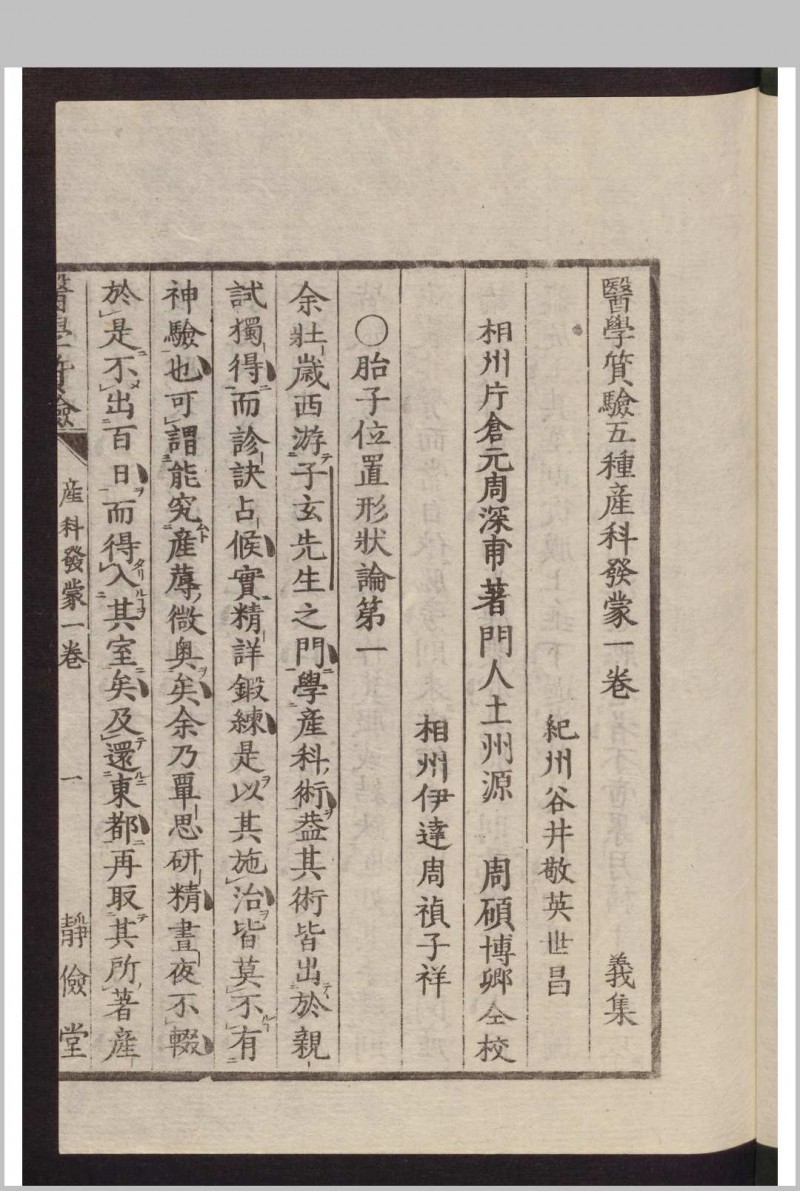 醫學質驗五種産科發蒙一卷　義集
紀州谷井敬英世昌
相州片倉元周深甫著門人土州源　周碩博卿仝校
相州伊達周禎子祥
〇胎子位置形狀論第一
余壯歳西游子玄先生之門學産科術葢其術皆出於親
試獨得而診訣占候實精詳鍛練是以其施治皆莫不有
神驗也可謂能究産蓐微奥矣余乃覃思研精晝夜不輟
於是不出百日而得入其室矣及還東都再取其所著産
醫學質驗　産科發蒙一卷　一　靜儉堂